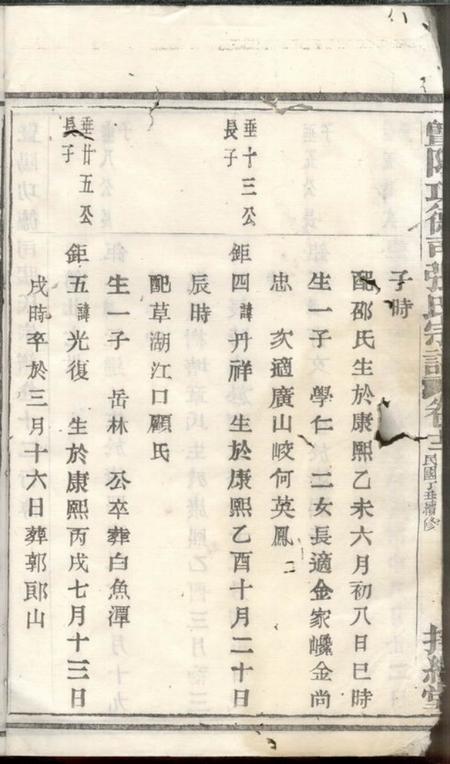 暨陽功德司張氏宗譜 卷十二 民國丁亥續修
子時
配邵氏生於康熙乙未六月初八日巳時
生一子 學仁 二女長適金家㠝金尚
忠 次適廣山峧何英鳳
垂十三公長子 鉅四諱丹祥 生於康熙乙酉十月二十日
辰時
配草湖江口顧氏
生一子 岳林 公卒葬白魚潭
垂廿五公長子 鉅五諱光復 生於康熙丙戌七月十三日
戌時卒於三月十六日葬郭郎山